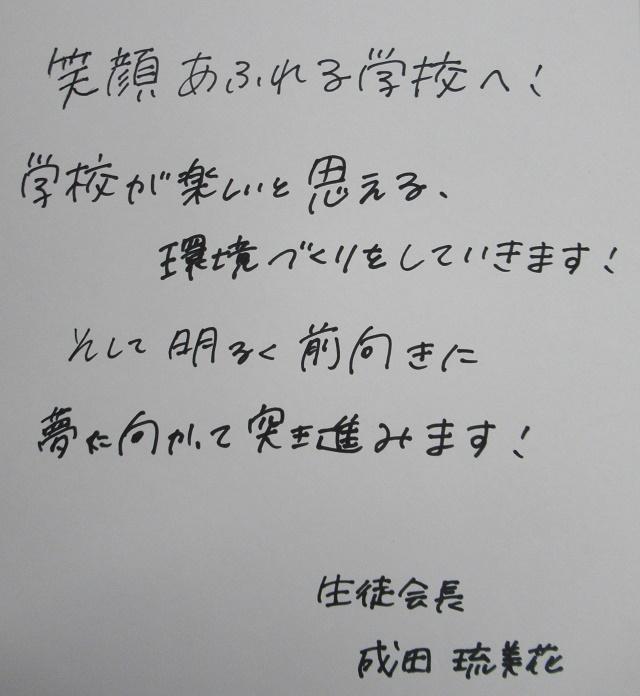 笑顔あふれる学校へ!
学校が楽しいと思える、
環境づくりをしていきます!
そして明るく前向きに
夢に向かって突き進みます!
生徒会長
成田 琉美花